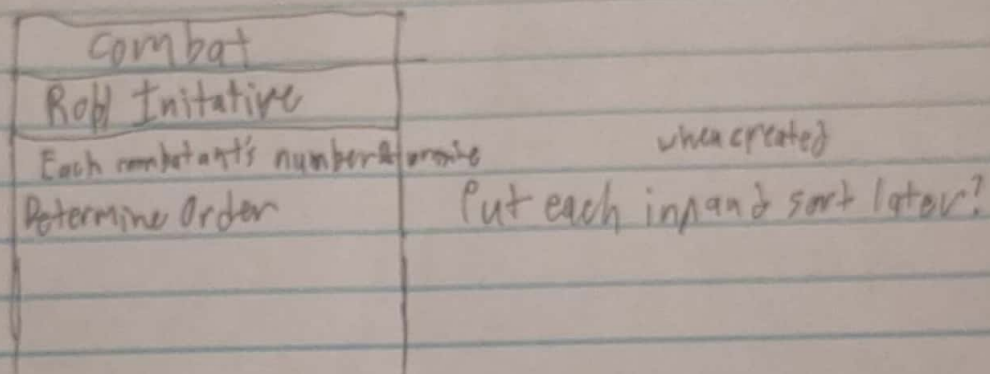 Combat
Roll Initative
Each combatant's number &
when created
Determine Order
Put each in and sort later?